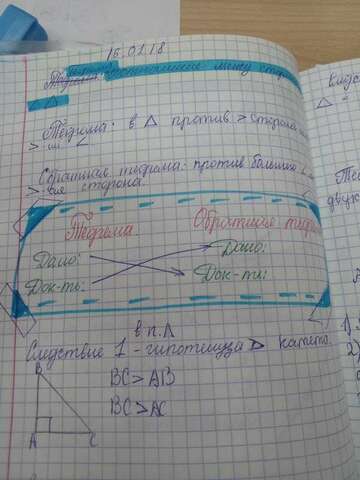 16.01.18
Теорема: соотношение между сторо
△
Теорема: в △ против > стороны
> ∠
Обратная теорема: против большего ∠
> сторона.
Теорема Обратная теорем
Дано: Дано:
Док-ть: Док-ть:
в п.△
Следствие 1 - гипотенуза > катета.
B
BC > AB
BC > AC
A C
Следс
△ =
Те
двух
1).
2)